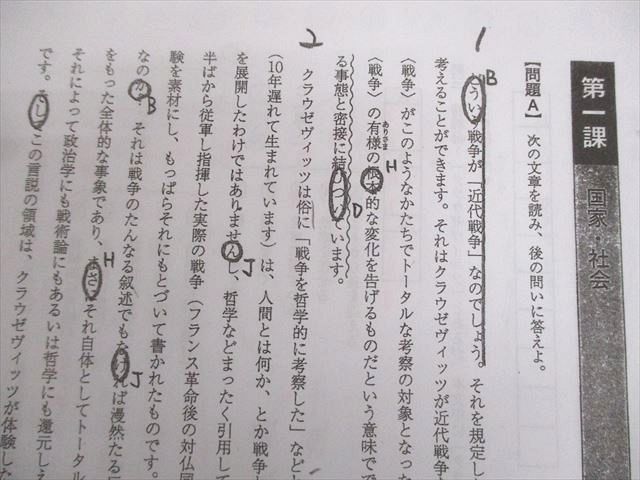 第一課 国家・社会
【問題A】 次の文章を読み、後の問いに答えよ。
1
B
どういう戦争が「近代戦争」なのでしょう。それを規定し
考えることができます。それはクラウゼヴィッツが近代戦争
〈戦争〉がこのようなかたちでトータルな考察の対象となっ
ありさま
〈戦争〉の有様の根本的な変化を告げるものだという意味で
H
る事態と密接に結びついています。
D
2
クラウゼヴィッツは俗に「戦争を哲学的に考察した」など
(10年遅れて生まれています)は、人間とは何か、とか戦争
を展開したわけではありませんし、哲学などまったく引用して
J
半ばから従軍し指揮した実際の戦争(フランス革命後の対仏同
験を素材にし、もっぱらそれにもとづいて書かれたものです。
なのか、それは戦争のたんなる叙述でもなければ漫然たる
B
J
をもった全体的な事象であり、まさにそれ自体としてトータル
H
それによって政治学にも戦術論にもあるいは哲学にも還元しえ
です。そしてこの言説の領域は、クラウゼヴィッツが体験した